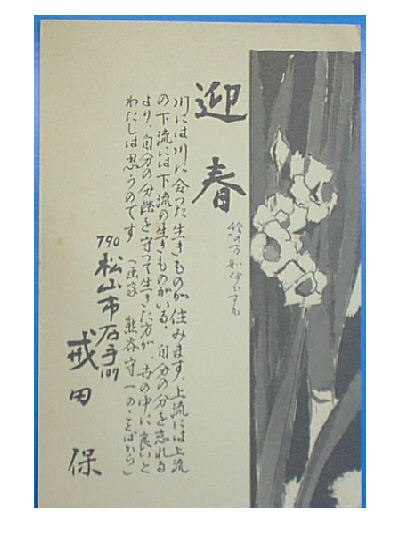 迎春
川には川に合った生きものが住みます。上流には上流
の下流には下流の生きものがいる。自分の分を忘れる
より、自分の分際を守って生きた方が、世の中に良いと
わたしは思うのです （画家 熊谷守一のことばから）
790
松山市石手
戒田 保